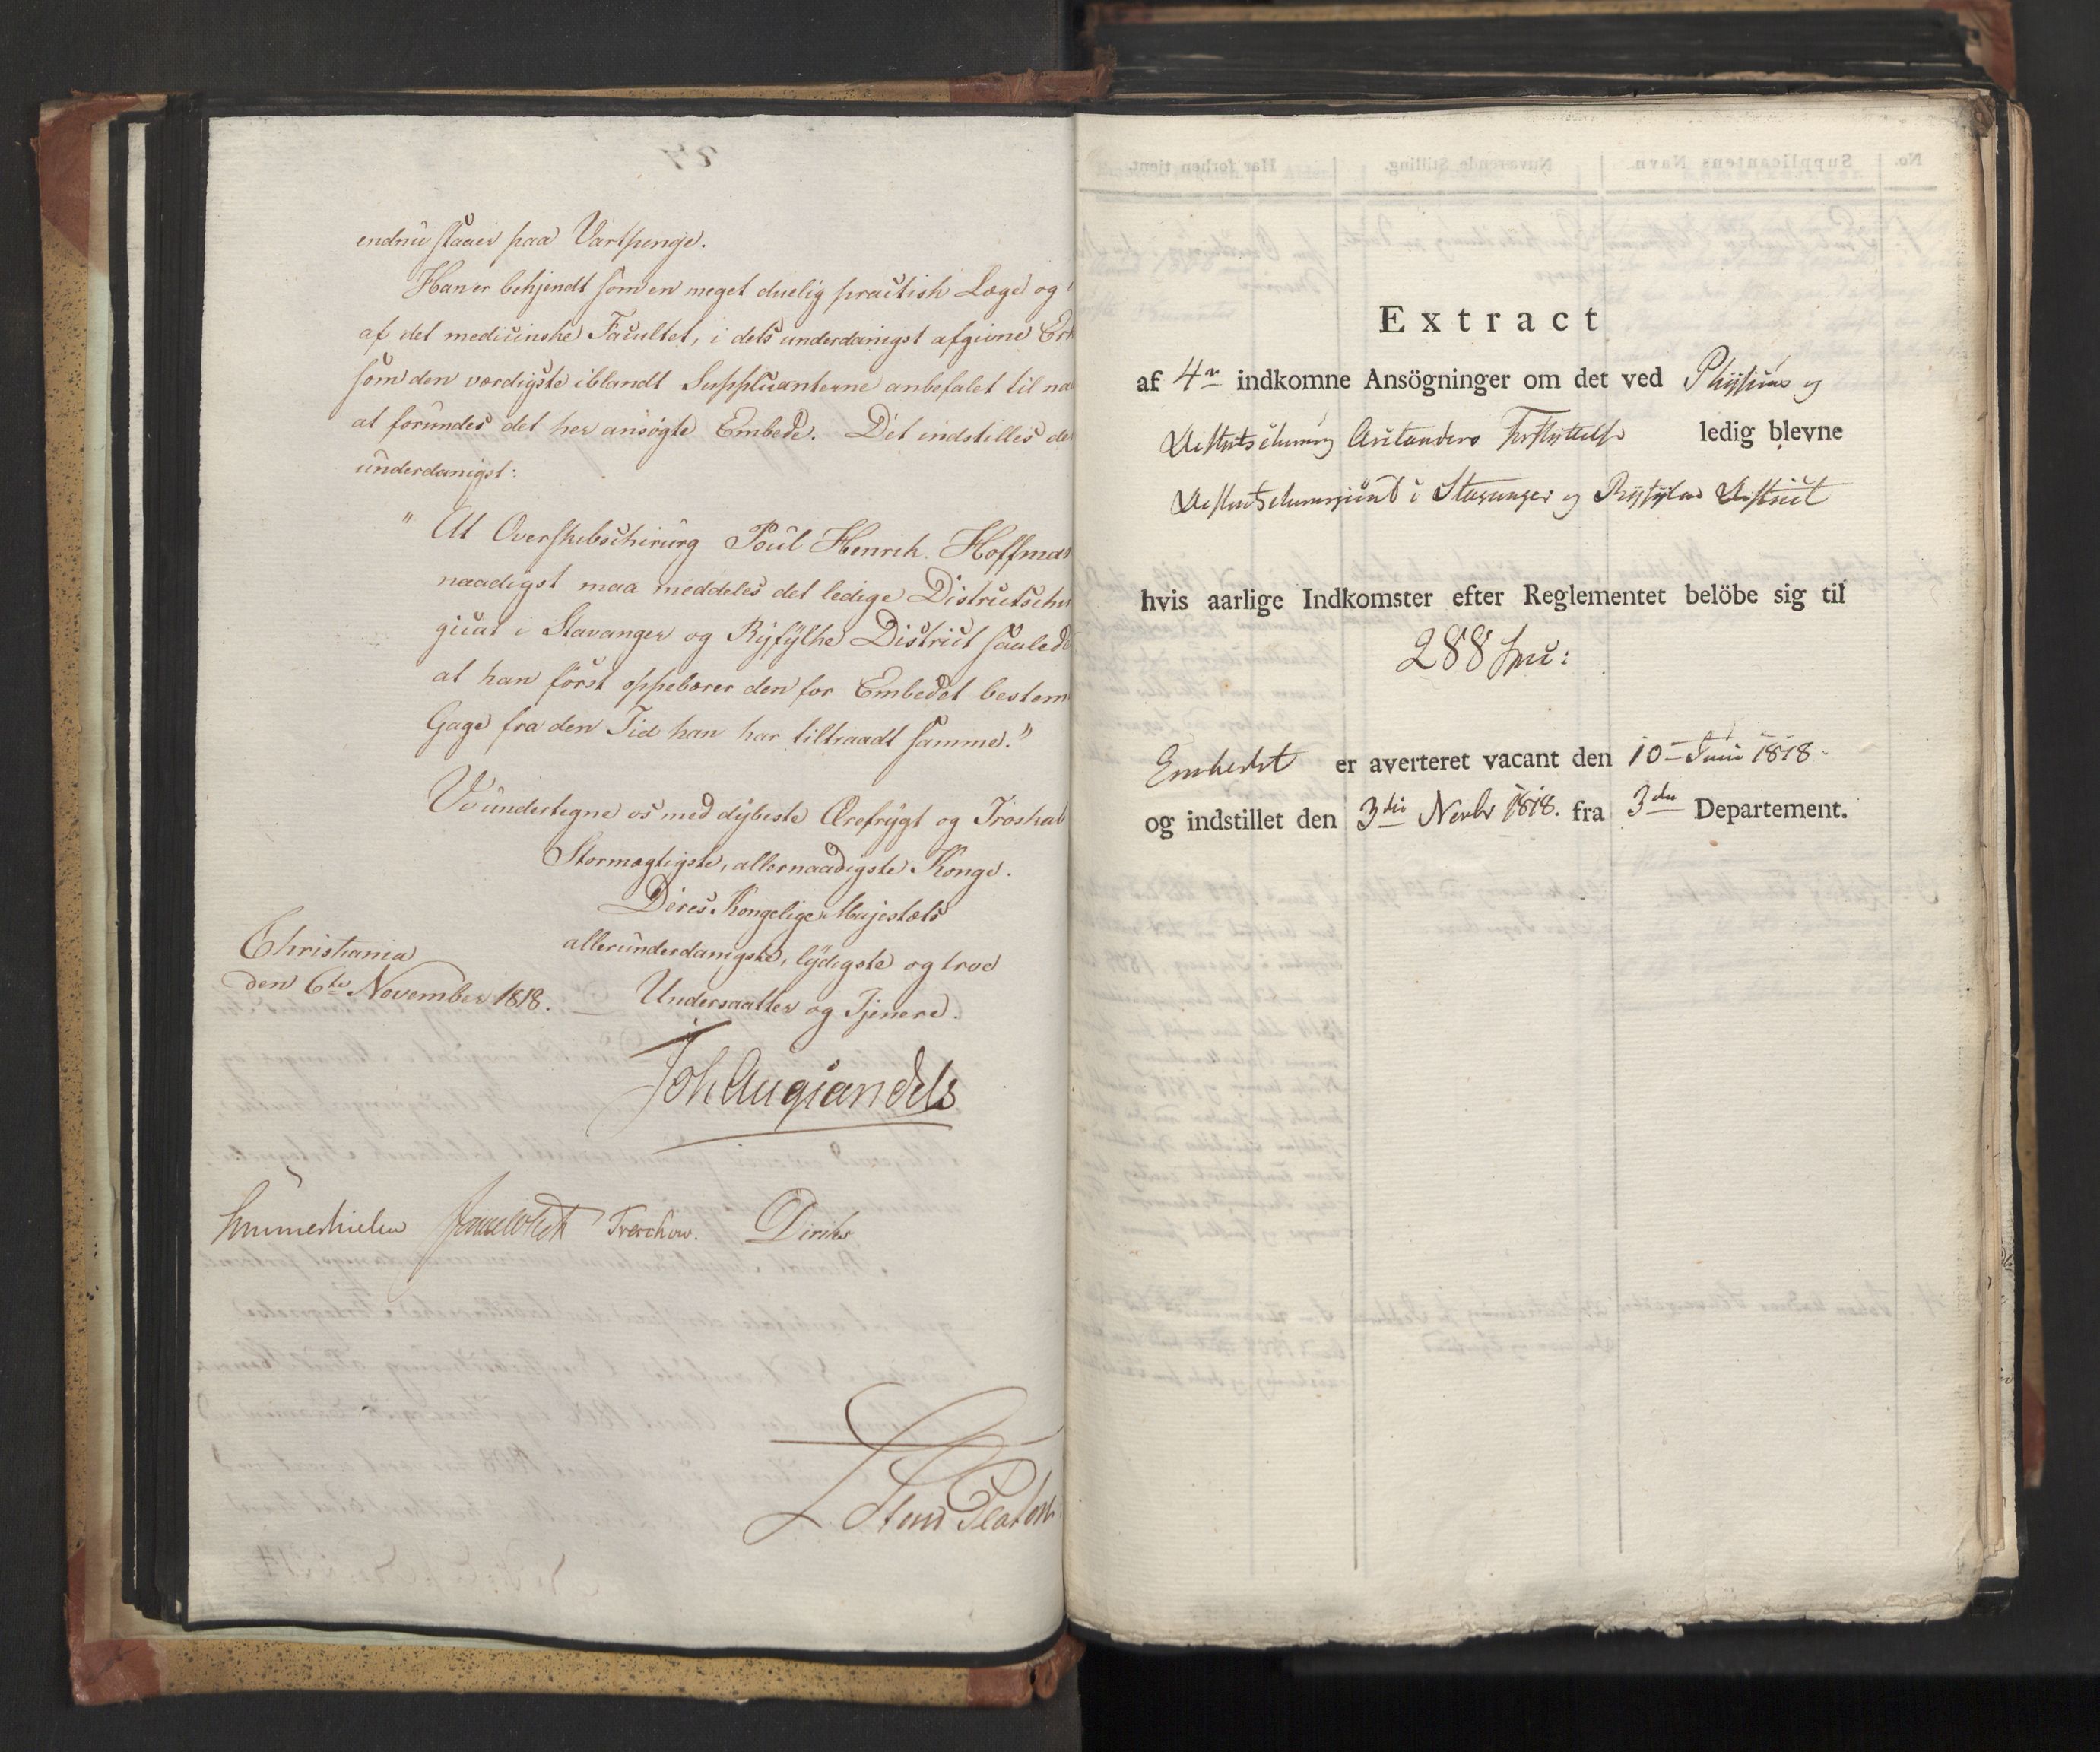 endnu staaer paa Vartpenge.
Han er bekjendt som en meget duelig practisk Læge og
af det medicinske Facultet, i dets underdanigst afgivne
som den værdigste iblandt Supplicanterne anbefalet til
at forundes det her ansøgte Embede. Det indstilles
underdanigst:
" At Overskibschirurg Poul Henrik Hoffman
naadigst maa meddeles det ledige Districtschi
gicat i Stavanger og Ryfylke District saaled
at han først oppebærer den for Embedet bestem
Gage fra den Tid han har tiltraadt samme."
Vi undertegne os med dybeste Ærefrygt og Troskab
Stormægtigste, allernaadigste Konge.
Deres Kongelige Majestæts
allerunderdanigste, lydigste og troe
Undersaatter og Tjenere.
Christiania
den 6te November 1818.
Joh Aug Sandels
Sommerhielm Treschow. Diriks
Extract
af 4re indkomne Ansögninger om det ved Physicus og
Districtschirurg Forflyttelse ledig blevne
Districtschirurgicat i Stavanger og Ryfylke District
hvis aarlige Indkomster efter Reglementet belöbe sig til
288 Spec:
Embedet er averteret vacant den 10 Juni 1818
og indstillet den 3die Novbr 1818. fra 3die Departement.